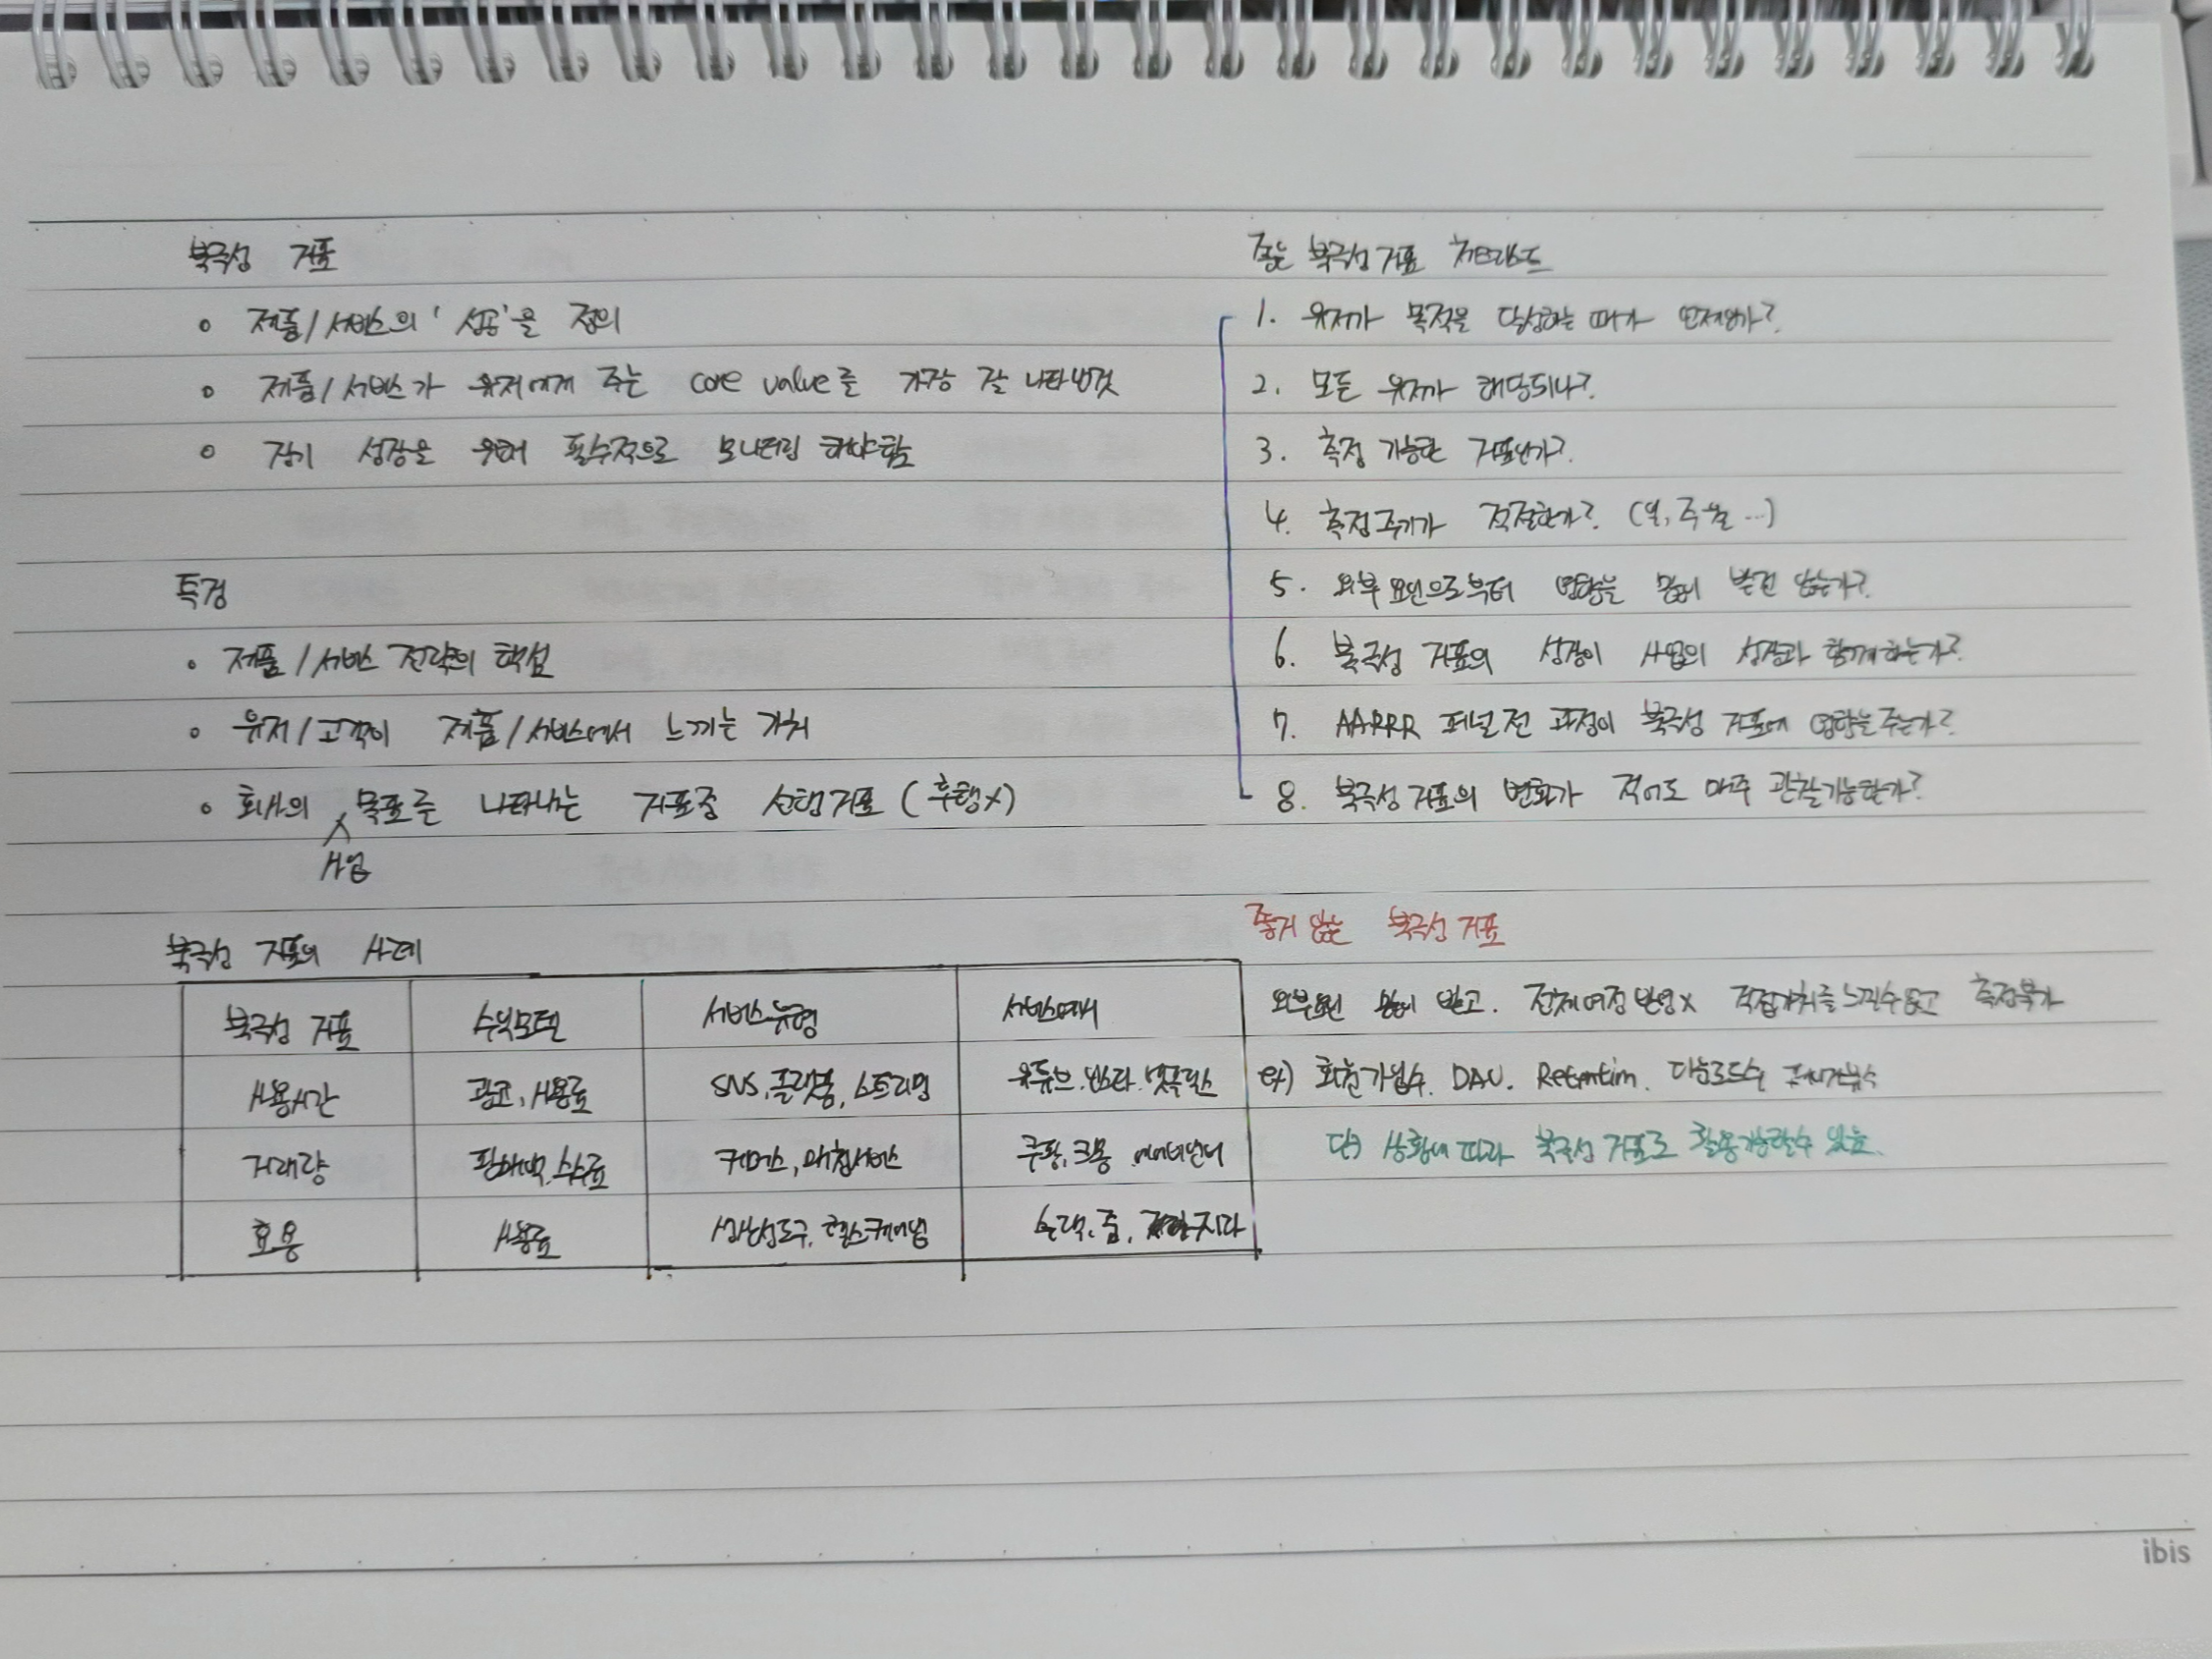 북극성 지표
• 제품/서비스의 '성공'을 정의
• 제품/서비스가 유저에게 주는 core value를 가장 잘 나타낸것
• 장기 성장을 위해 필수적으로 모니터링 해야함
특징
• 제품/서비스 전략의 핵심
• 유저/고객이 제품/서비스에서 느끼는 가치
• 회사의 목표를 나타내는 지표중 선행지표 (후행X)
사업
북극성 지표의 사례
북극성 지표 수익모델 서비스유형 서비스예시
사용시간 광고, 사용료 SNS, 플랫폼, 스트리밍 유튜브. 인스타. 넷플릭스
거래량 판매액, 수수료 커머스, 매칭서비스 쿠팡, 크몽
효용 사용료 생산성도구, 슬랙, 줌, 지라
좋은 북극성 지표 체크리스트
1. 유저가 목적을 달성하는 때가 언제인가?
2. 모든 유저가 해당되나?
3. 측정 가능한 지표인가?
4. 측정주기가 적절한가? (일, 주, 월 ...)
5. 외부 요인으로부터 영향을 많이 받진 않는가?
6. 북극성 지표의 성장이 사업의 성장과 함께하는가?
7. AARRR 퍼널 전 과정이 북극성 지표에 영향을 주는가?
8. 북극성 지표의 변화가 적어도 매주 관찰가능한가?
좋지 않은 북극성 지표
외부요인 많이 받고. 전체여정 반영X 직접가치를 느낄수없고 측정불가
ex) 회원가입수. DAU. Retention. 다운로드수
단) 상황에 따라 북극성 지표로 활용가능할수 있음.
ibis